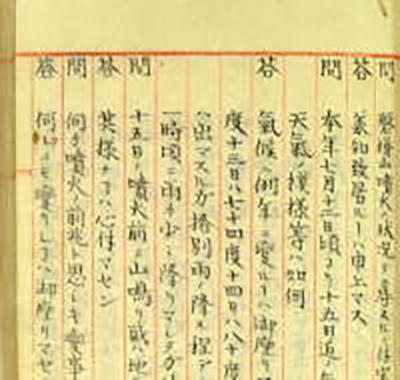 問 磐梯山噴火ノ状況ヲ尋スル
答 義知致居ルーハ申上マス
問 本年七月十二日頃ヨリ十五日迄
天氣ノ模様等ハ如何
答 氣候ハ例年ニ変ルーハ御座リ
度十三日ハ七十四度十四日ハ八十度
出マスルガ格別雨ノ降ル程デ
一時頃ニ雨ガ少シ降リマシタガ
問 十五日ノ噴火前ニ山鳴リ或ハ地
答 其様ナーハ心付マセン
問 何カ噴火ノ前兆ト思シキ変事
答 何ニモ変リシーハ御座リマセ